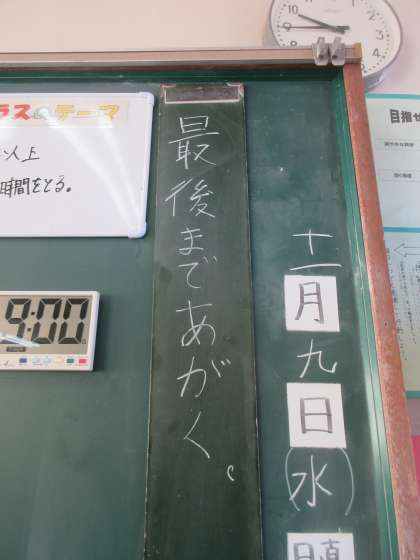 最後まであがく。
十一月九日(水)
日直
ラスのテーマ
人上
時間をとる。
9:00
目指せ